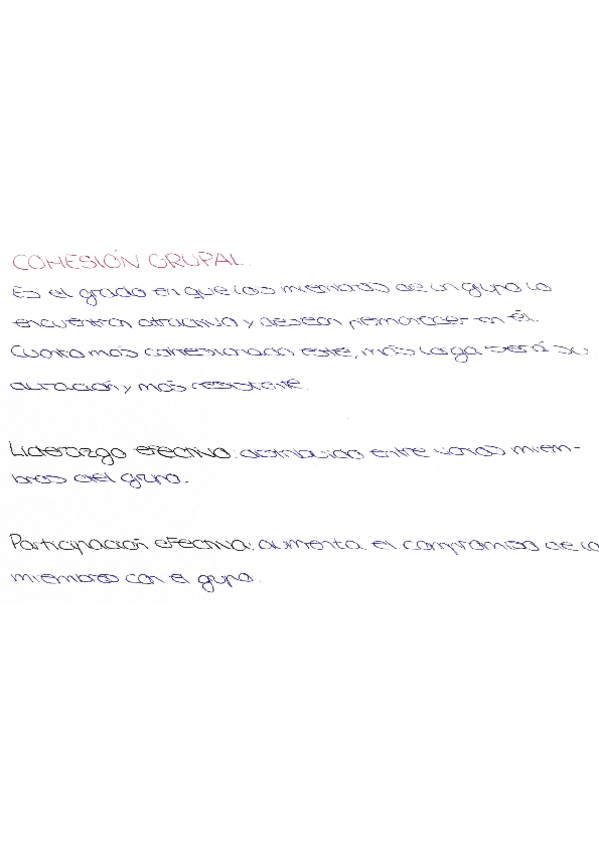 COHESIÓN GRUPAL.
Es el grado en que los miembros de un grupo lo
encuentran atractivo y desean permanecer en él.
Cuanto más cohesionado esté, más larga será su
duración y más resistente.
Liderazgo efectivo: distribuido entre varios miem-
bros del grupo.
Participación efectiva: aumenta el compromiso de lo
miembros con el grupo.